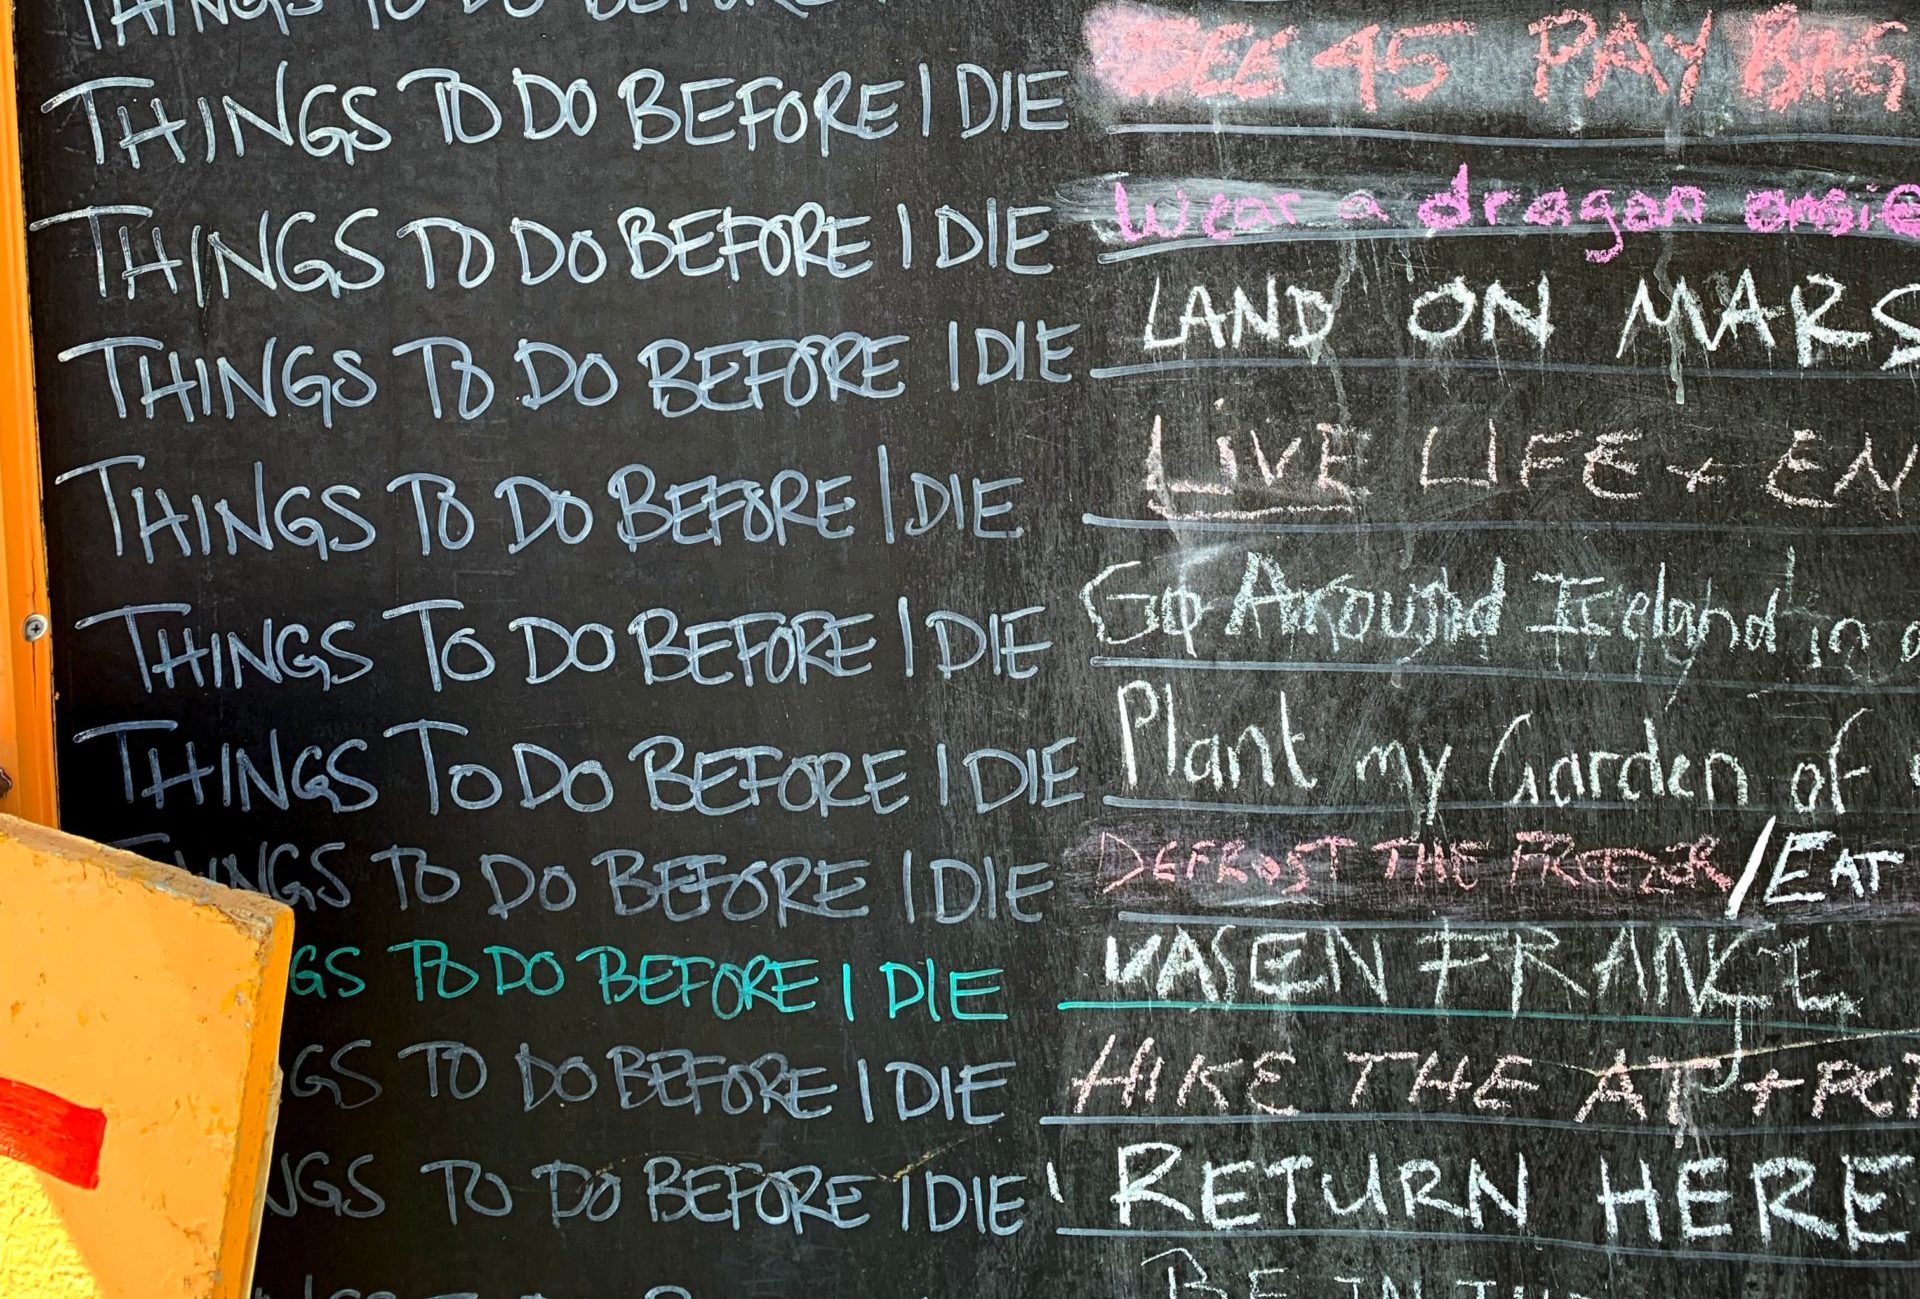 THINGS TO DO BEFORE
THINGS TO DO BEFORE I DIE SEE 45 PAY BIG
THINGS TO DO BEFORE I DIE Wear a dragon onsie
THINGS TO DO BEFORE I DIE LAND ON MARS
THINGS TO DO BEFORE I DIE LIVE LIFE + EN
THINGS TO DO BEFORE I DIE Go Around Iceland in a
THINGS TO DO BEFORE I DIE Plant my Garden of
THINGS TO DO BEFORE I DIE DEFROST THE FREEZER / EAT
GS TO DO BEFORE I DIE FRANCE
GS TO DO BEFORE I DIE HIKE THE AT +
NGS TO DO BEFORE I DIE RETURN HERE
BE IN